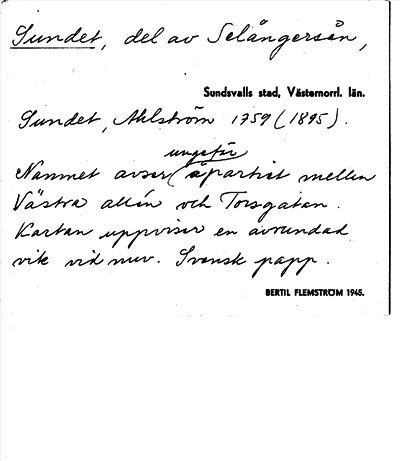 Sundet, del av Selångersån,
Sundsvalls stad, Västernorrl. län.
Sundet, Ahlström 1759 (1895).
ungefär
Namnet avser åpartiet mellan
Västra allén och Torsgatan.
Kartan uppvisar en avrundad
vik vid nuv. Svensk papp.
BERTIL FLEMSTRÖM 1945.